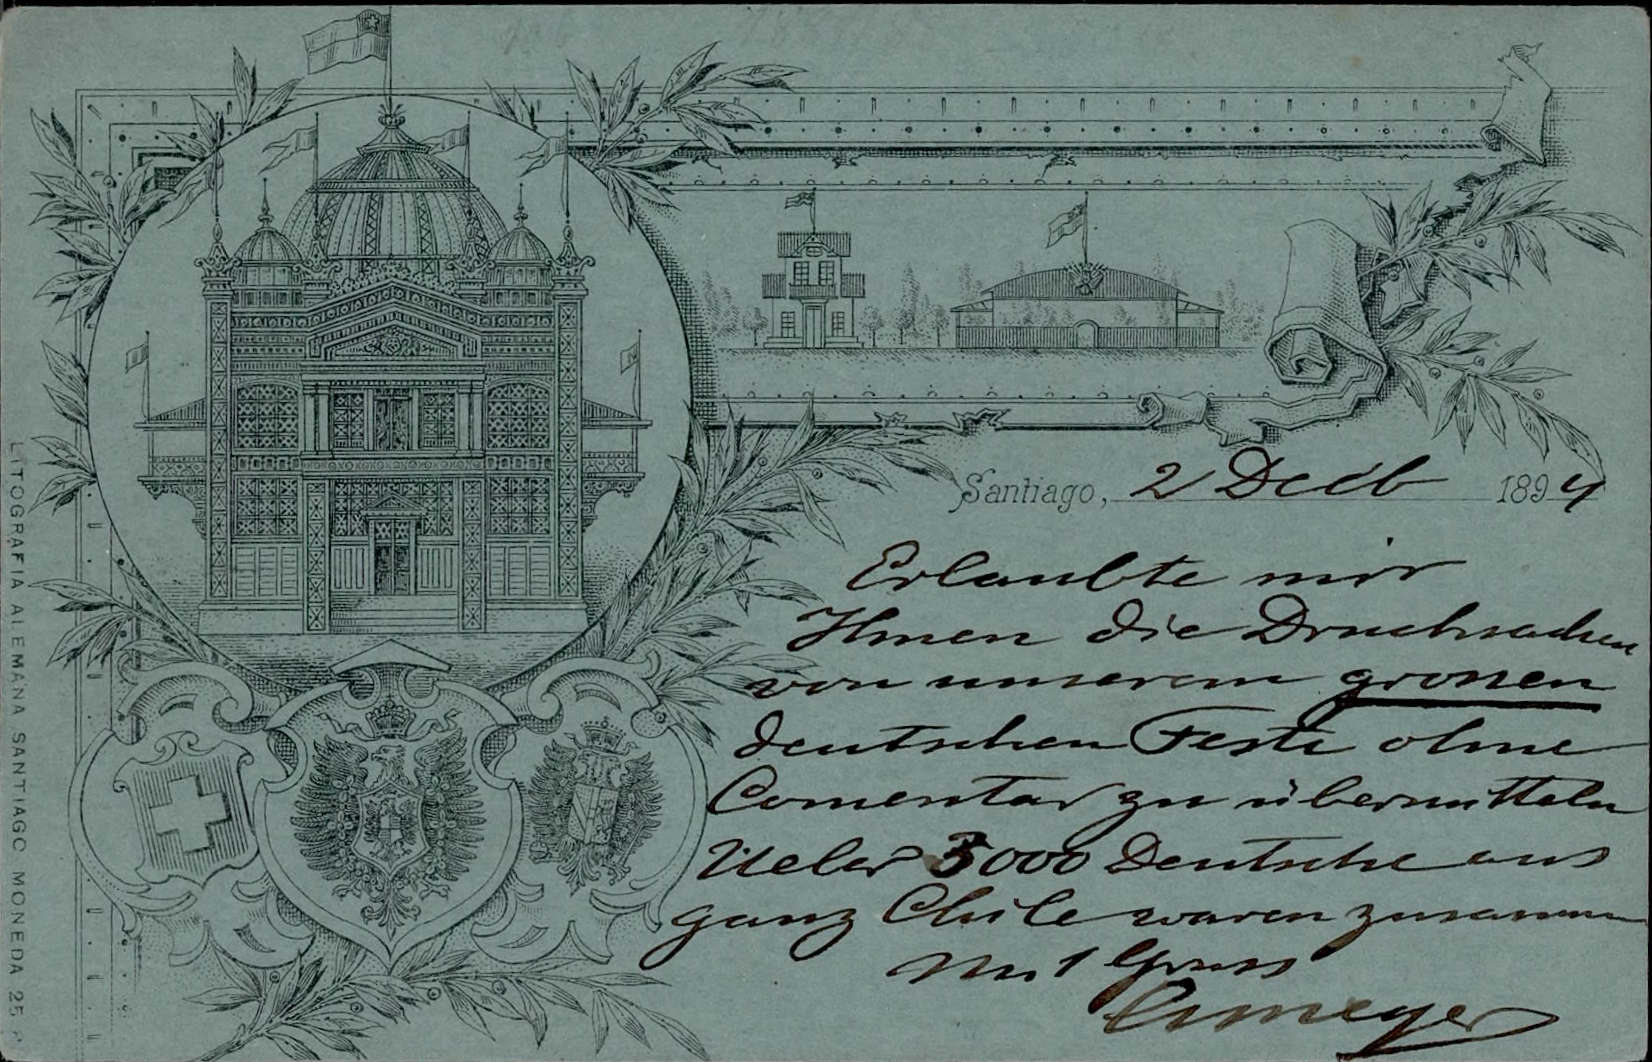 Santiago, 2 Decb 1894
Erlaubte mir
Ihnen die Drucksachen
von unserem grossen
deutschen Feste ohne
Comentar zu übermitteln
Ueber 3000 Deutsche aus
ganz Chile waren zusammen
Mit Gruss
LITOGRAFIA ALEMANA SANTIAGO MONEDA 25